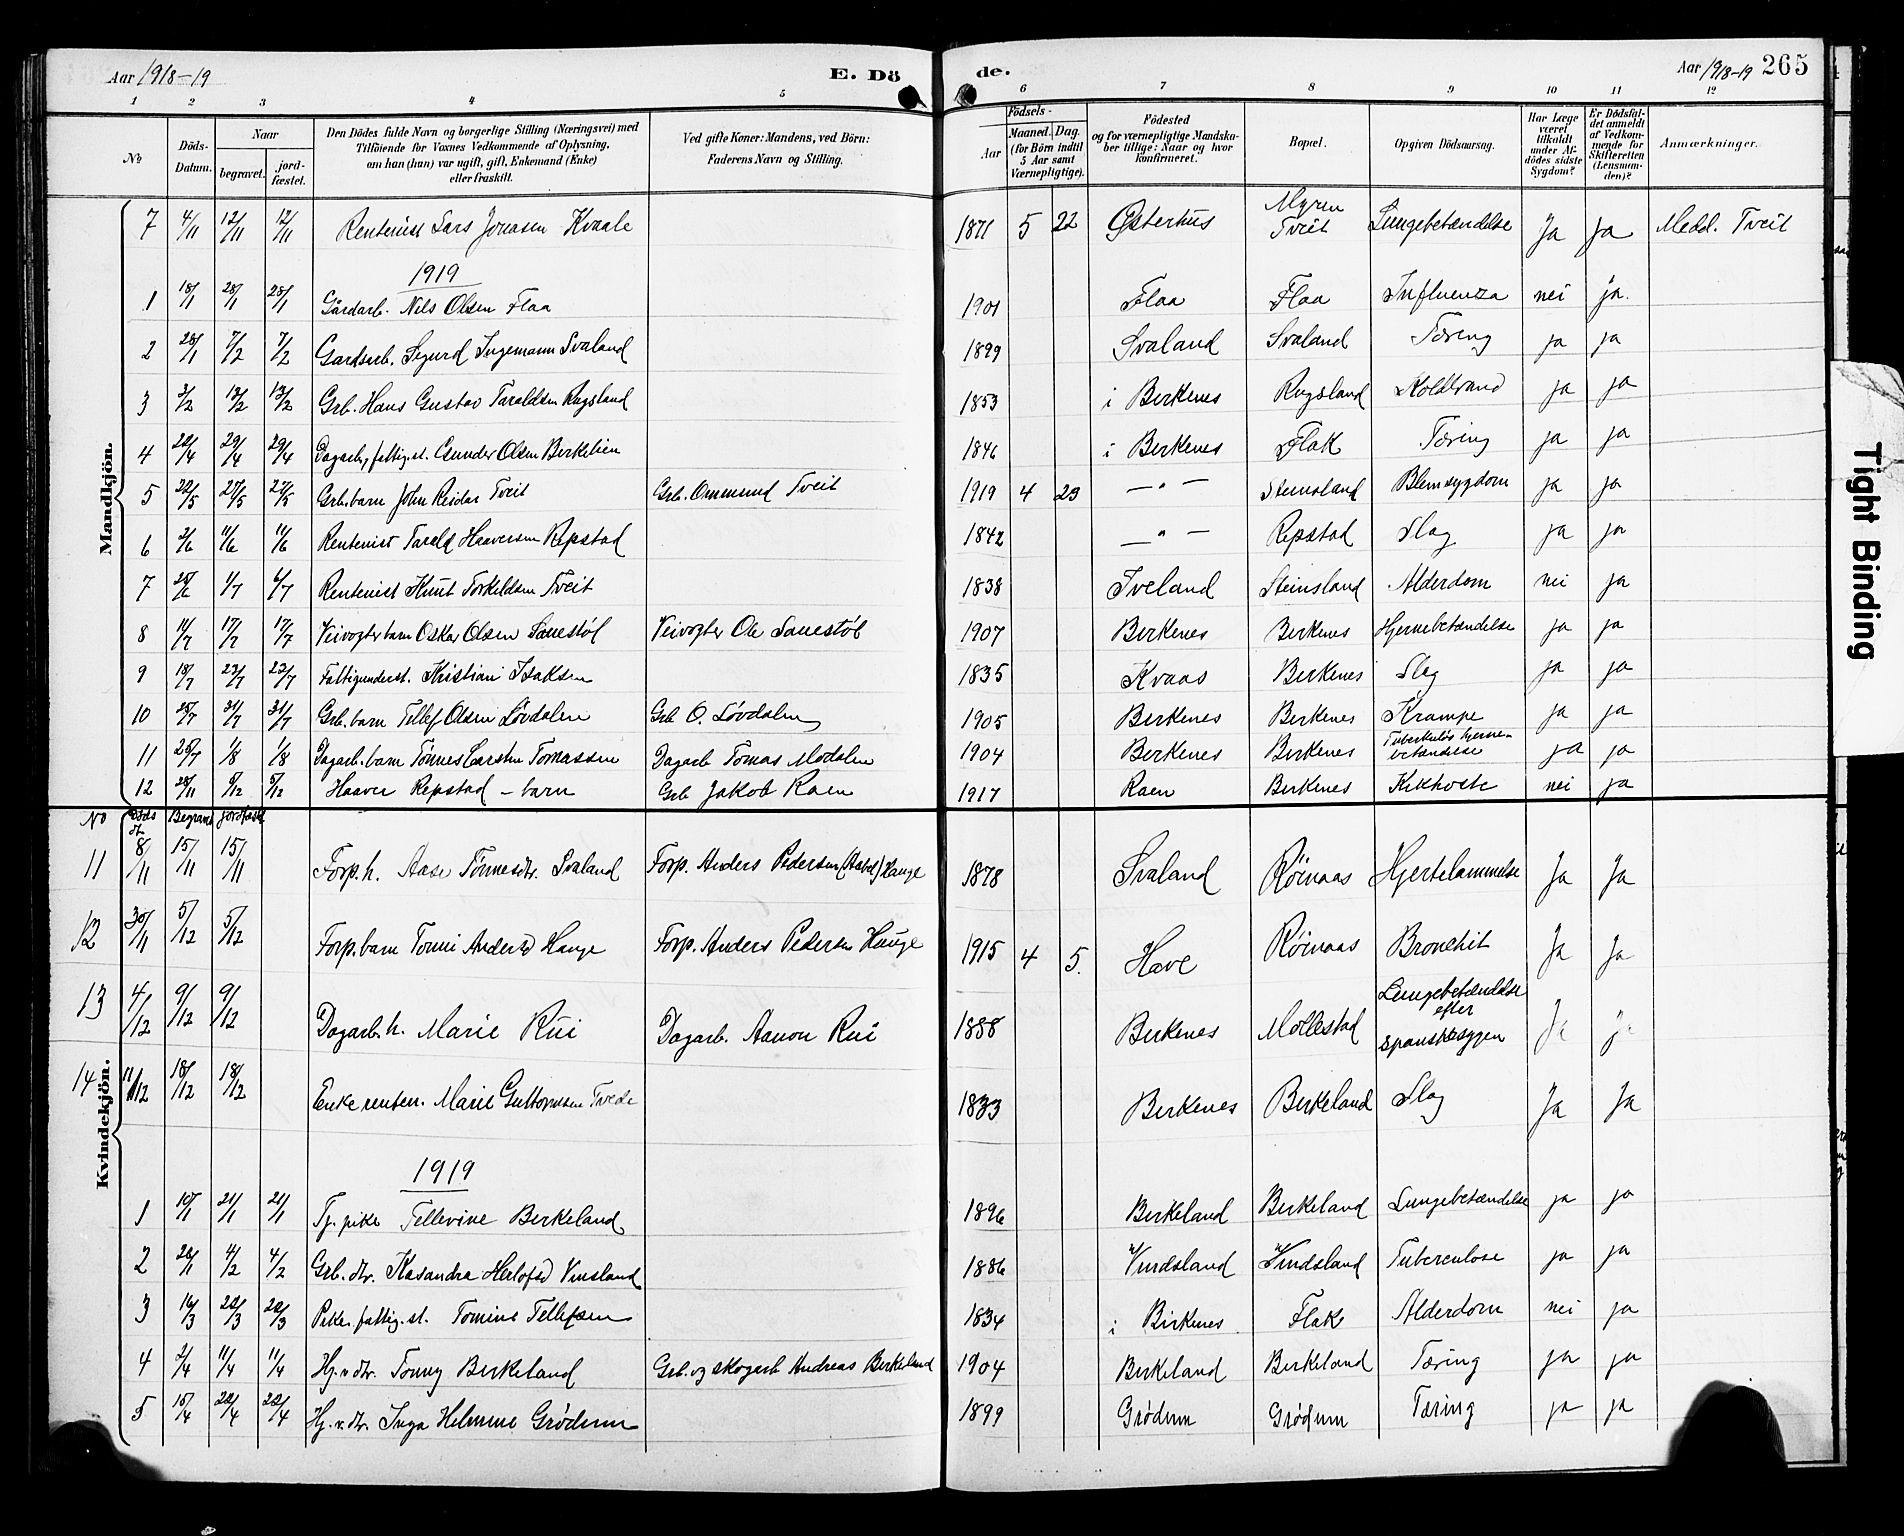 Aar 1918-19 E. Dö
de. Aar 1918-19 265
1 2 3 4 5 6 7 8 9 10 11 12
No Döds-Datum. Naar begravet. jordfæstet. Den Dödes fulde Navn og borgerlige Stilling (Næringsvei) med Tilföiende for Voxnes Vedkommende af Oplysning, om han (hun) var ugift, gift, Enkemand (Enke) eller fraskilt. Ved gifte Koner: Mandens, ved Börn: Faderens Navn og Stilling. Födsels- Aar Maaned. Dag. (for Börn indtil 5 Aar samt Værnepligtige). Födested og for værnepligtige Mandskaber tillige: Naar og hvor konfirmeret. Bopæl. Opgiven Dödsaarsag. Har Læge været tilkaldt under Afdödes sidste Sygdom? Er Dödsfaldet anmeldt af Vedkommende for Skifteretten (Lensmanden)? Anmærkninger.
Mandkjön.
7 4/11 12/11 12/11 Rentenist Lars Jonasen Kvaale 1871 5 22 Østerhus Myren Tveit Lungebetændelse Ja Ja Medd. Tveit
1919
1 18/1 28/1 28/1 Gårdarb. Nils Olsen Flaa 1901 Flaa Flaa Influenza nei ja.
2 28/1 7/2 7/2 Gardsarb. Sigurd Ingemann Svaland 1899 Svaland Svaland Tæring ja ja
3 3/2 13/2 13/2 Grb. Hans Gustav Taraldsen Rugsland 1853 i Birkenes Rugsland Koldbrand ja ja
4 22/4 29/4 29/4 Dagarb., fattig.st. Gunder Olsen Birkelien 1846 i Birkenes Flak Tæring ja ja
5 22/5 27/5 27/5 Grb. barn John Reidar Tveit Grb. Ommund Tveit 1919 4 23 — " — Steinsland Blemsygdom ja ja
6 2/6 11/6 11/6 Rentenist Tarald Haaversen Repstad 1842 — " — Repstad Slag ja ja
7 25/6 1/7 1/7 Rentenist Knut Torkeldsen Tveit 1838 Iveland Steinsland Alderdom nei ja
8 11/7 17/7 17/7 Veivogter barn Oskar Olsen Sanestöl Veivogter Ole Sanestöl 1907 Birkenes Birkenes Hjernebetændelse ja ja
9 18/7 23/7 23/7 Fattigunderst. Kristian Isaksen 1835 Kvaas Birkenes Slag ja ja
10 25/7 31/7 31/7 Grb. barn Tellef Olsen Lövdalen Grb O. Lövdalen 1905 Birkenes Birkenes Krampe ja ja
11 25/7 1/8 1/8 Dagarb. barn Tönnes Carsten Tomassen Dagarb Tomas Modalen 1904 Birkenes Birkenes Tuberkulös hjernebetændelse ja ja
12 28/11 5/12 5/12 Haaver Repstad - barn Grb Jakob Raen 1917 Raen Birkenes Kikhoste nei ja
Kvindekjön.
No Døds dt. Begravet Jordfæstet
11 8/11 15/11 15/11 Forp. h. Aase Tönnesdtr. Svaland Forp. Anders Pedersen Hauge 1878 Svaland Röinaas Hjertelammelse Ja Ja
12 30/11 5/12 5/12 Forp. barn Tomi Andersd Hauge Forp. Anders Pedersen Hauge 1915 4 5. Have Röinaas Bronchit Ja Ja
13 4/12 9/12 9/12 Dagarb. h. Marie Rui Dagarb. Aanon Rui 1888 Birkenes Mollestad Lungebetændelse efter spanskesygen Ja ja
14 11/12 18/12 18/12 Enke renten. Marie Guttormsen Tvede 1833 Birkenes Birkeland Slag Ja Ja
1919
1 10/1 21/1 21/1 Tj. pike Tellevine Birkeland 1896 Birkeland Birkeland Lungebetændelse ja ja
2 28/1 4/2 4/2 Grb. dtr. Kasandra Herlofsd Vinsland 1886 Vindsland Vindsland Tuberculose ja ja
3 16/3 22/3 22/3 Pike, fattig. st. Tomine Tellefsen 1834 i Birkenes Flak Alderdom nei ja
4 2/4 11/4 11/4 Hj. v. dtr. Tonny Birkeland Grb. og skogarb Andreas Birkeland 1904 Birkeland Birkeland Tæring ja ja
5 15/4 22/4 22/4 Hj. v. dtr. Inga Helmine Grødum 1899 Grødum Grødum Tæring ja ja
Tight Binding